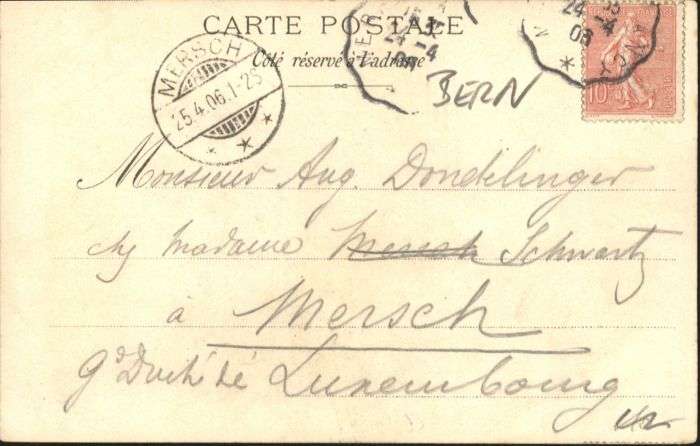 CARTE POSTALE
Côté réservé à l'adresse
MERSCH
25.4.06.1-2S
24 -4
06
24
06 4
10
BERN
Monsieur Aug. Dondelinger
chz Madame Mersch Schwartz
à Mersch
Gd Duché de Luxembourg